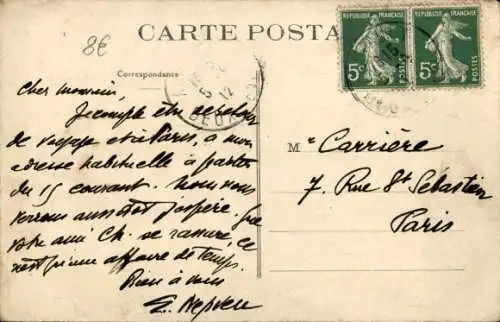 8€
CARTE POSTA
RÉPUBLIQUE FRANÇAISE
5c POSTES
RÉPUBLIQUE FRANÇAISE
5c POSTES
Correspondance
Cher monsieur,
Je compte être de retour
de voyage et à Paris, à mon
adresse habituelle à partir
du 15 courant. Nous nous
verrons aussitôt j'espère. Que
votre ami Ch. se rassure, ce
n'est qu'une affaire de temps.
Bien à vous
E. Nepveu
M r Carrière
7 Rue St Sébastien
Paris